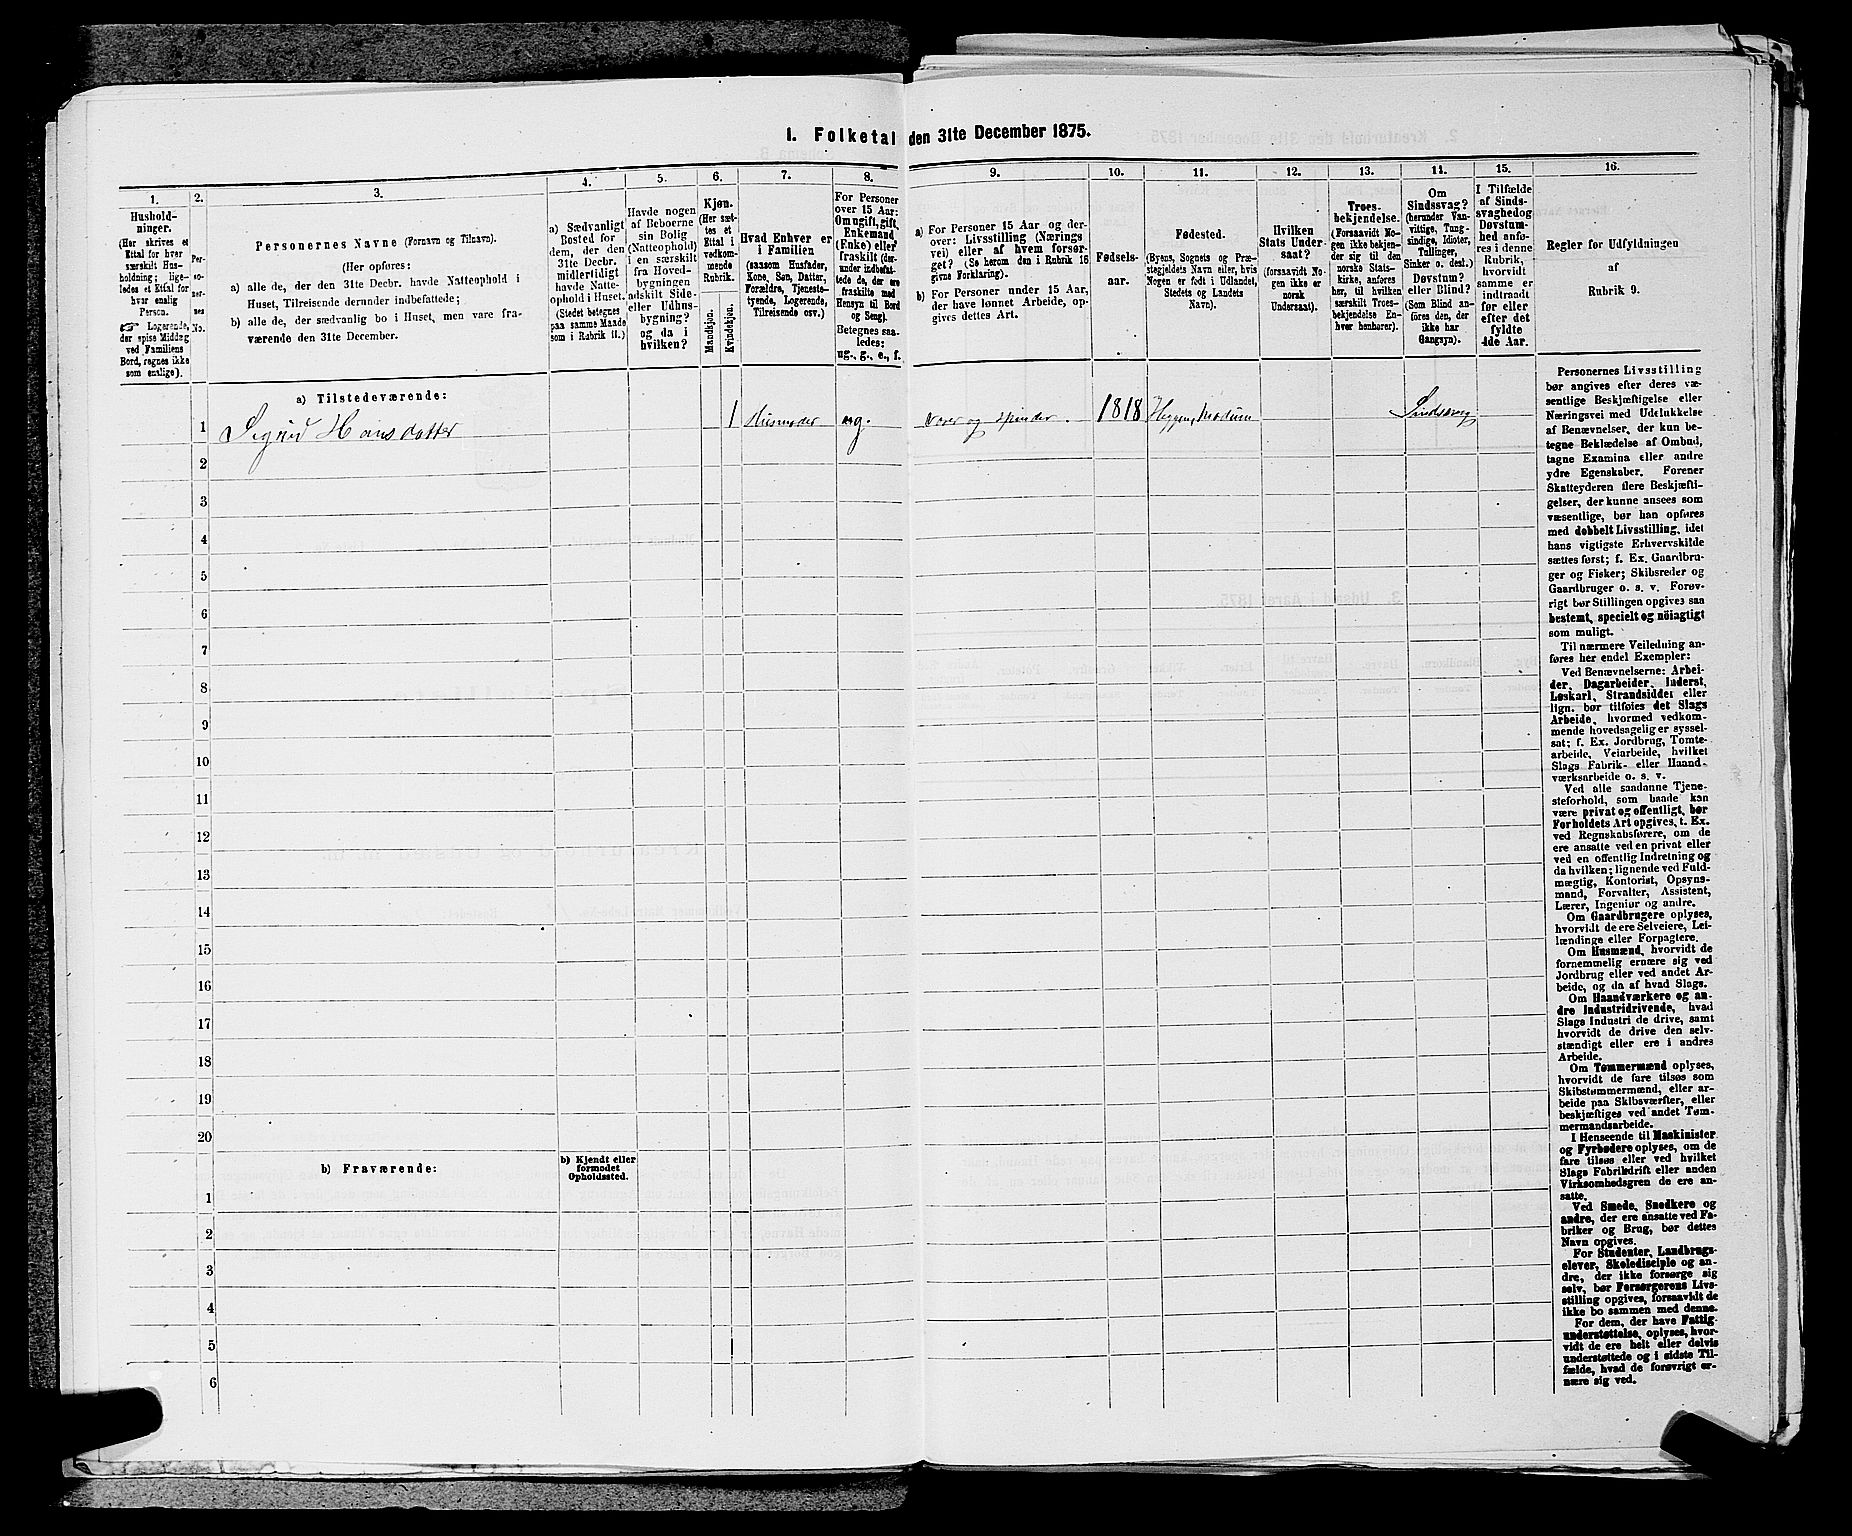 1. Folketal den 31te December 1875.
1.
2.
3.
4.
5.
6.
7.
8.
9.
10.
11.
12.
13.
14.
15.
16.
Hushold-
ninger.
(Her skrives et
Ettal for hver
særskilt Hus-
holdning; lige-
ledes et Ettal for
hver enslig
Person.
☞ Logerende,
der spise Middag
ved Familiens
Bord, regnes ikke
som enslige).
Per-
so-
ner-
nes
No.
Personernes Navne (Fornavn og Tilnavn).
(Her opføres:
a) alle de, der den 31te Decbr. havde Natteophold i
Huset, Tilreisende derunder indbefattede;
b) alle de, der sædvanlig bo i Huset, men vare fra-
værende den 31te December.
a) Sædvanligt
Bosted for
dem, der den
31te Decbr.
midlertidigt
havde Natte-
ophold i Huset.
(Stedet betegnes
paa samme Maade
som i Rubrik 11.)
Havde nogen
af Beboerne
sin Bolig
(Natteophold)
i en særskilt
fra Hoved-
bygningen
adskilt Side-
eller Udhus-
bygning?
og da i
hvilken?
Kjøn.
(Her sæt-
tes et
Ettal i
vedkom-
mende
Rubrik.
Mandkjøn.
Kvindekjøn.
Hvad Enhver er
i Familien
(saasom Husfader,
Kone, Søn, Datter,
Forældre, Tjeneste-
tyende, Logerende,
Tilreisende osv.)
For Personer
over 15 Aar:
Om ugift, gift,
Enkemand
(Enke) eller
fraskilt (der-
under indbefat-
tede de, der ere
fraskilte med
Hensyn til Bord
og Seng).
Betegnes saa-
ledes:
ug., g., e., f.
a) For Personer 15 Aar og der-
over: Livsstilling (Nærings
vei) eller af hvem forsør-
get? (Se herom den i Rubrik 16
givne Forklaring).
b) For Personer under 15 Aar,
der have lønnet Arbeide, op-
gives dettes Art.
Fødsels-
aar.
Fødested.
(Byens, Sognets og Præ-
stegjeldets Navn eller, hvis
Nogen er født i Udlandet,
Stedets og Landets
Navn).
Hvilken
Stats Under-
saat?
(forsaavidt No-
gen ikke er
norsk
Undersaat).
Troes-
bekjendelse.
(Forsaavidt No-
gen ikke bekjen-
der sig til den
norske Stats-
kirke, anføres
her, til hvilken
særskilt Troes-
bekjendelse En-
hver henhører).
Om
Sindssvag?
(herunder Van-
vittige, Tung-
sindige, Idioter,
Tullinger,
Sinker o. desl.)
Døvstum?
eller Blind?
(Som Blind an-
føres den, der
ikke har
Gangsyn).
I Tilfælde
af Sinds-
svaghed og
Døvstum-
hed anfø-
res i denne
Rubrik,
hvorvidt
samme er
indtraadt
før eller
efter det
fyldte
4de Aar.
Regler for Udfyldningen
af
Rubrik 9.
a) Tilstedeværende:
1 Sigrid Hansdatter 1 Husmoder ug. Væver og spinder. 1818 Heggen, Modum Sindssvag
2
3
4
5
6
7
8
9
10
11
12
13
14
15
16
17
18
19
20
b) Fraværende:
b) Kjendt eller
formodet
Opholdssted.
1
2
3
4
5
6
Personernes Livsstilling
bør angives efter deres væ-
sentlige Beskjæftigelse eller
Næringsvei med Udelukkelse
af Benævnelser, der kun be-
tegne Beklædelse af Ombud,
tagne Examina eller andre
ydre Egenskaber. Forener
Skatteyderen flere Beskjæfti-
gelser, der kunne ansees som
væsentlige, bør han opføres
med dobbelt Livsstilling, idet
hans vigtigste Erhvervskilde
sættes først; f. Ex. Gaardbru-
ger og Fisker; Skibsreder og
Gaardbruger o. s. v. Forøv-
rigt bør Stillingen opgives saa
bestemt, specielt og nöiagtigt
som muligt.
Til nærmere Veiledning an-
føres her endel Exempler:
Ved Benævnelserne: Arbei-
der, Dagarbeider, Inderst,
Løskarl, Strandsidder eller
lign. bør tilføies det Slags
Arbeide, hvormed vedkom-
mende hovedsagelig er syssel-
sat; f. Ex. Jordbrug, Tomte-
arbeide, Veiarbeide, hvilket
Slags Fabrik- eller Haand-
værksarbeide o. s. v.
Ved alle saadanne Tjene-
steforhold, som baade kan
være privat og offentligt, bør
Forholdets Art opgives, t. Ex.
ved Regnskabsførere, om de
ere ansatte ved en privat eller
ved en offentlig Indretning og
da hvilken; lignende ved Fuld-
mægtig, Kontorist, Opsyns-
mand, Forvalter, Assistent,
Lærer, Ingeniør og andre.
Om Gaardbrugere oplyses,
hvorvidt de ere Selveiere, Lei-
lændinge eller Forpagtere.
Om Husmænd, hvorvidt de
fornemmelig ernære sig ved
Jordbrug eller ved andet Ar-
beide, og da af hvad Slags.
Om Haandværkere og an-
dre Industridrivende, hvad
Slags Industri de drive, samt
hvorvidt de drive den selv-
stændigt eller ere i andres
Arbeide.
Om Tømmermænd oplyses,
hvorvidt de fare tilsøs som
Skibstømmermænd, eller ar-
beide paa Skibsværfter, eller
beskjæftiges ved andet Tøm-
mermandsarbeide.
I Henseende til Maskinister
og Fyrbødere oplyses, om de
fare tilsøs eller ved hvilket
Slags Fabrikdrift eller anden
Virksomhedsgren de ere an-
satte.
Ved Smede, Snedkere og
andre, der ere ansatte ved Fa-
briker og Brug, bør dettes
Navn opgives.
For Studenter, Landbrugs-
elever, Skoledisciple og an-
dre, der ikke forsørge sig
selv, bør Forsørgerens Livs-
stilling opgives, forsaavidt de
ikke bo sammen med denne.
For dem, der have Fattig-
understøttelse, oplyses, hvor-
vidt de ere helt eller delvis
understøttede og i sidste Til-
fælde, hvad de forøvrigt er-
nære sig ved.